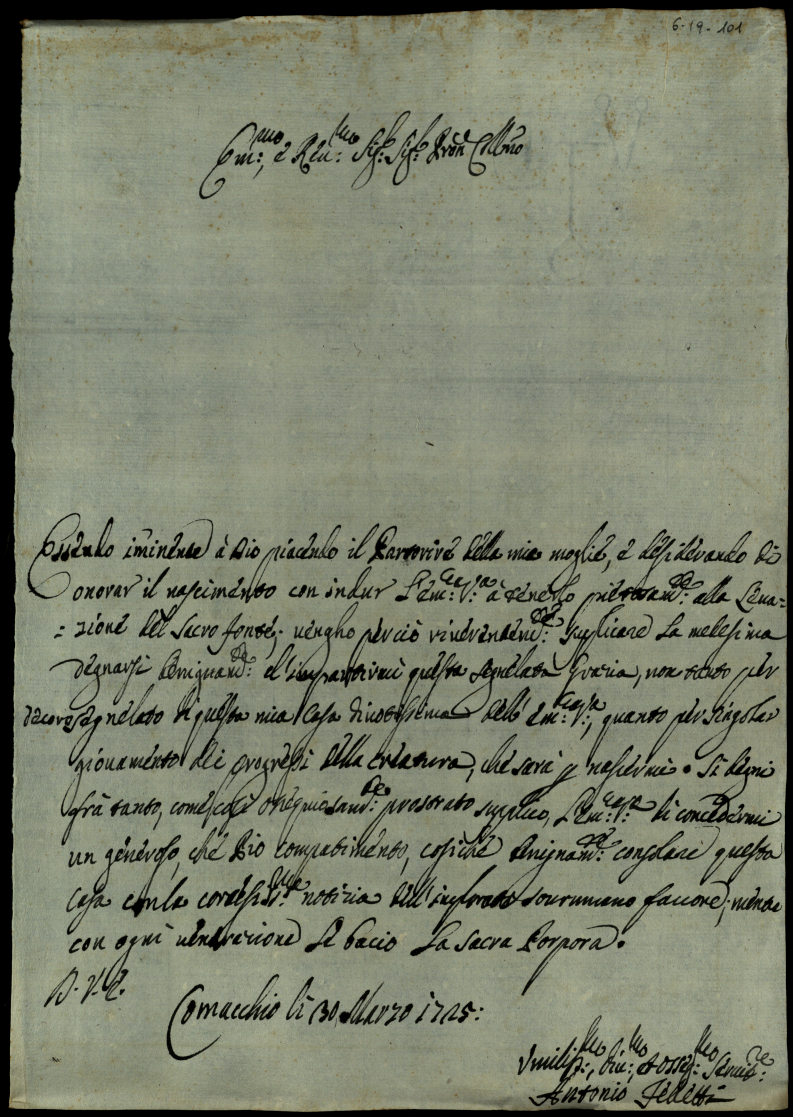 6-19-101
Em:mo, e Reu:mo Sig:r Sig:r Pron Collmo
Essendo iminente à Dio piacendo il Partorire della mia moglie, e desiderando di
onorar il nascimento con indur l'Em:za V:ra à tenerlo pietosam:te alla Leua-
=zione del Sacro fonte; uengho perciò riuerentem:te supplicare la medesima
degnarsi benignam:te et impartirmi questa segnalata Grazia, non tanto per
decoro segnalato di questa mia Casa diuotissima dell' Em:za V:ra, quanto per singolar
giouamento dei progressi della creatura, che sarà p nascermi. Si degni
frà tanto, come così ossequiosam:te prostrato supplico, l'Em:za V:ra di concedermi
un generoso, che Pio compatimento, cosiche benignam:te consolare questa
Casa con la cortesiss:ma notizia dell' implorato sourumano fauore; mentre
con ogni uenerazione Le bacio la Sacra Porpora.
D. V. E.
Comacchio li 30 Marzo 1725:
Vmiliss:mo, Diu:mo, et osseq:mo Seruid:re
Antonio Feletti